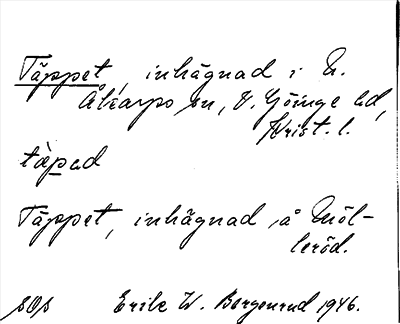 Täppet, inhägnad i N.
Åkarps sn, V. Göinge hd,
Krist. l.
täpad
Täppet, inhägnad å Möl-
leröd.
Erik W. Bergenrud 1946.